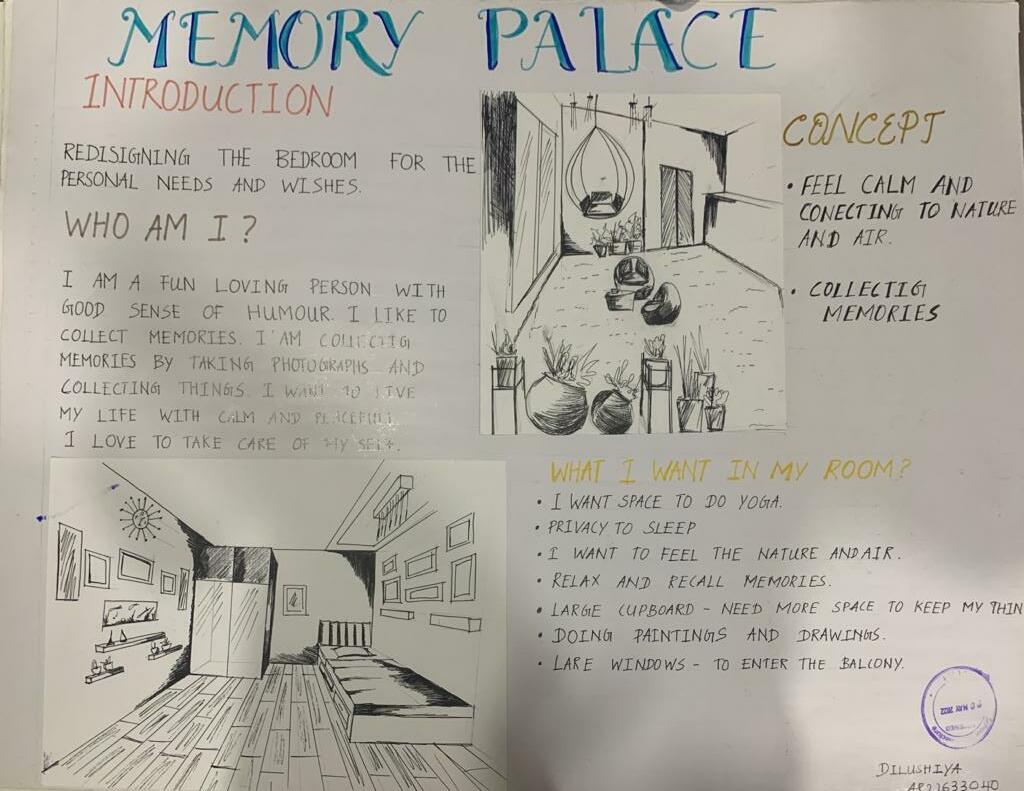 MEMORY PALACE
INTRODUCTION
REDISIGNING THE BEDROOM FOR THE
PERSONAL NEEDS AND WISHES.
WHO AM I ?
I AM A FUN LOVING PERSON WITH
GOOD SENSE OF HUMOUR. I LIKE TO
COLLECT MEMORIES. I'AM COLLECTIG
MEMORIES BY TAKING PHOTOGRAPHS AND
COLLECTING THINGS. I WANT TO LIVE
MY LIFE WITH CALM AND PEACEFULL
I LOVE TO TAKE CARE OF MY SELF.
CONCEPT
• FEEL CALM AND
CONECTING TO NATURE
AND AIR.
• COLLECTIG
MEMORIES
WHAT I WANT IN MY ROOM?
• I WANT SPACE TO DO YOGA.
• PRIVACY TO SLEEP
• I WANT TO FEEL THE NATURE AND AIR.
• RELAX AND RECALL MEMORIES.
• LARGE CUPBOARD - NEED MORE SPACE TO KEEP MY THIN
• DOING PAINTINGS AND DRAWINGS.
• LARE WINDOWS - TO ENTER THE BALCONY.
MAY 2022
DILUSHIYA